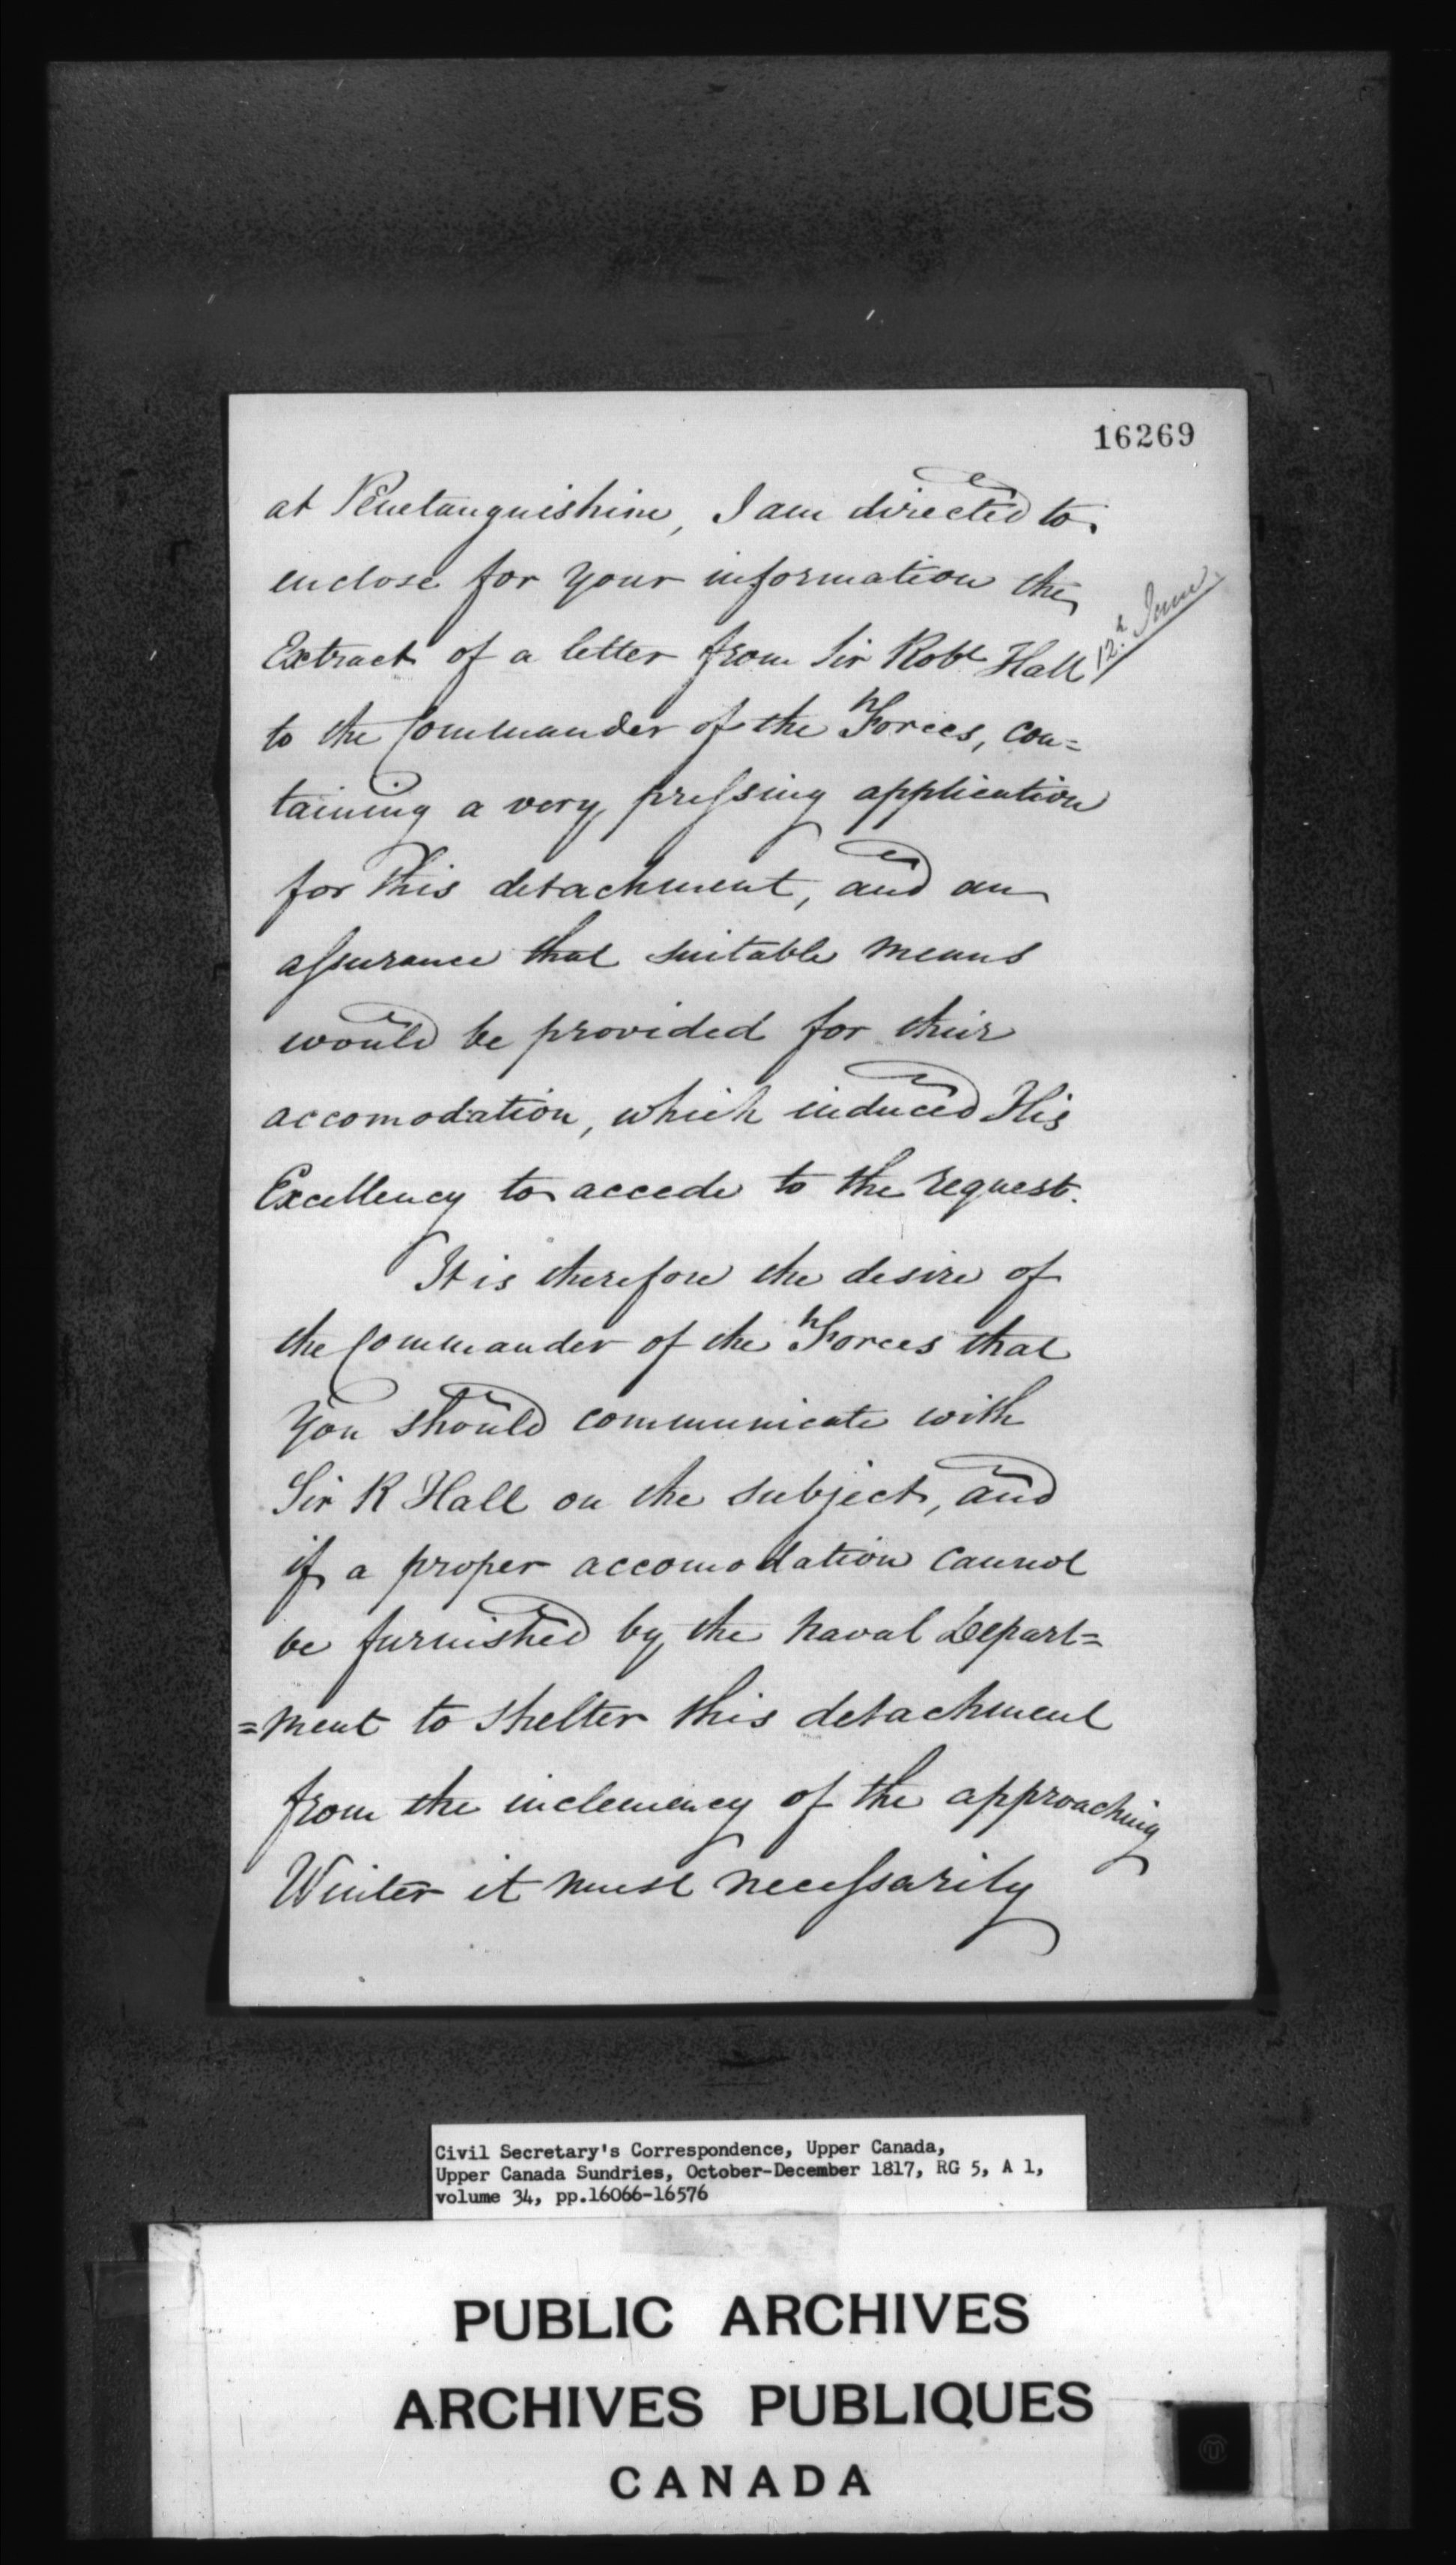 16269
at Penetanguishine, I am directed to
enclose for your information the
Extract of a letter from Sir Robt Hall
12th June
to the Commander of the Forces, con=
taining a very pressing application
for this detachment, and an
assurance that suitable means
would be provided for their
accomodation, which induced His
Excellency to accede to the request.
It is therefore the desire of
the Commander of the Forces that
you should communicate with
Sir R Hall on the subject, and
if a proper accomodation cannot
be furnished by the Naval Depart=
=ment to shelter this detachment
from the inclemency of the approaching
Winter it must necessarily
Civil Secretary's Correspondence, Upper Canada,
Upper Canada Sundries, October-December 1817, RG 5, A 1,
volume 34, pp.16066-16576
PUBLIC ARCHIVES
ARCHIVES PUBLIQUES
CANADA